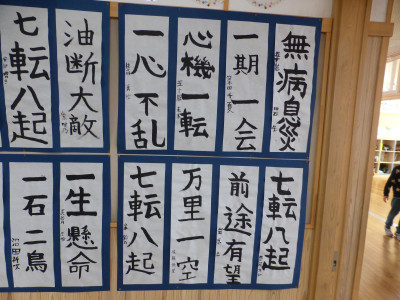 無病息災
一期一会
心機一転
一心不乱
油断大敵
七転八起
七転八起
前途有望
万里一空
七転八起
一生懸命
一石二鳥